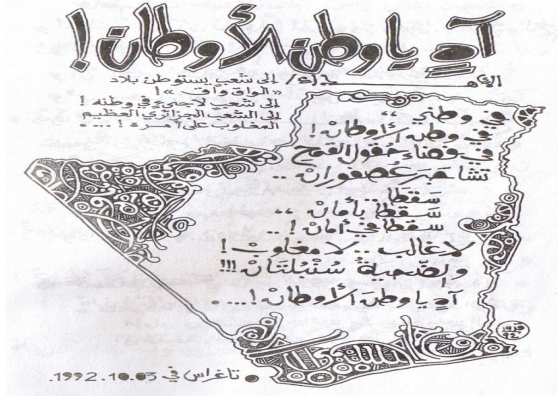 آهٍ يا وطن الأوطان!
إلى شعب يستوطن بلاد
«الواق واق»!
إلى شعب لاجئ في وطنه!
إلى الشعب الجزائري العظيم
المغلوب على أمره!...
في وطني ،،
في وطن الأوطان!
في فضاء حقول القمح
تشاجر عُصفوران..
سقطا..
سقطا بأمان ،،
سقطا في أمان!..
لا غالب.. لا مغلوب!
والضحيةُ سُنبلتان!!!
آهٍ يا وطن الأوطان!....
تاغراس في 1992.10.03.